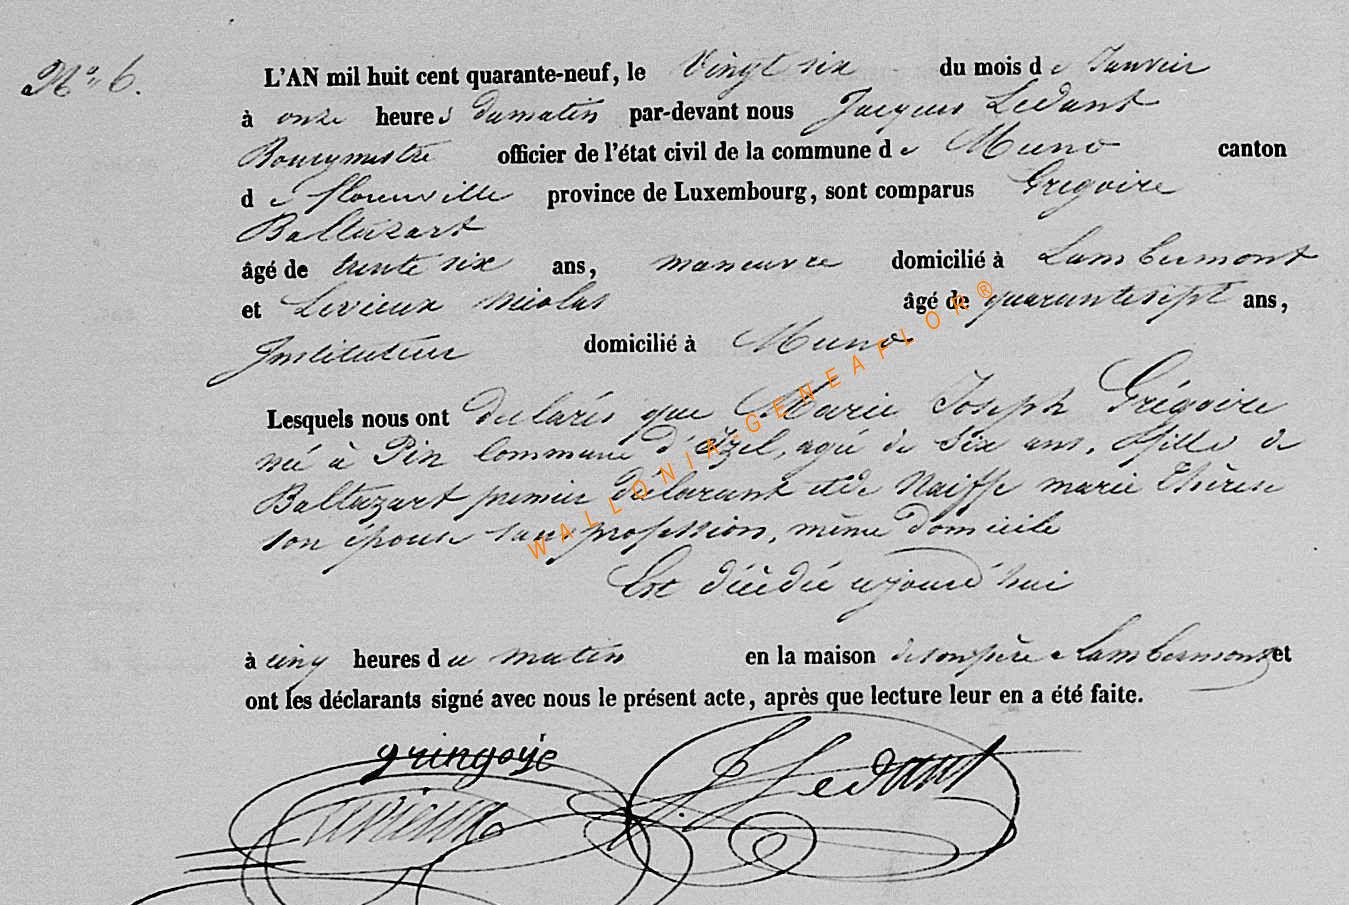 N° 6.
L'AN mil huit cent quarante-neuf, le Vingt six du mois de Janvier
à onze heures dumatin par-devant nous Jacques Ledant
Bourgmestre officier de l'état civil de la commune de Muno canton
de florenville province de Luxembourg, sont comparus Grégoire
Baltazart
âgé de trente six ans, maneuvre domicilié à Lambermont
et Levieux nicolas âgé de quarantesept ans,
Instituteur domicilié à Muno
Lesquels nous ont declarés que Marie Joseph Grégoire
née à Pin Commune d'Izel, agée de Six ans, fille de
Baltazart premier déclarant et de Naiffe marie thérèse
son épouse sans profession, même domicile
Est décédée ajourd'hui
à cinq heures du matin en la maison de son père a Lambermont et
ont les déclarants signé avec nous le présent acte, après que lecture leur en a été faite.
gringoye
Levieux
J. Ledant
WALLONIA-GENEAFLOR®